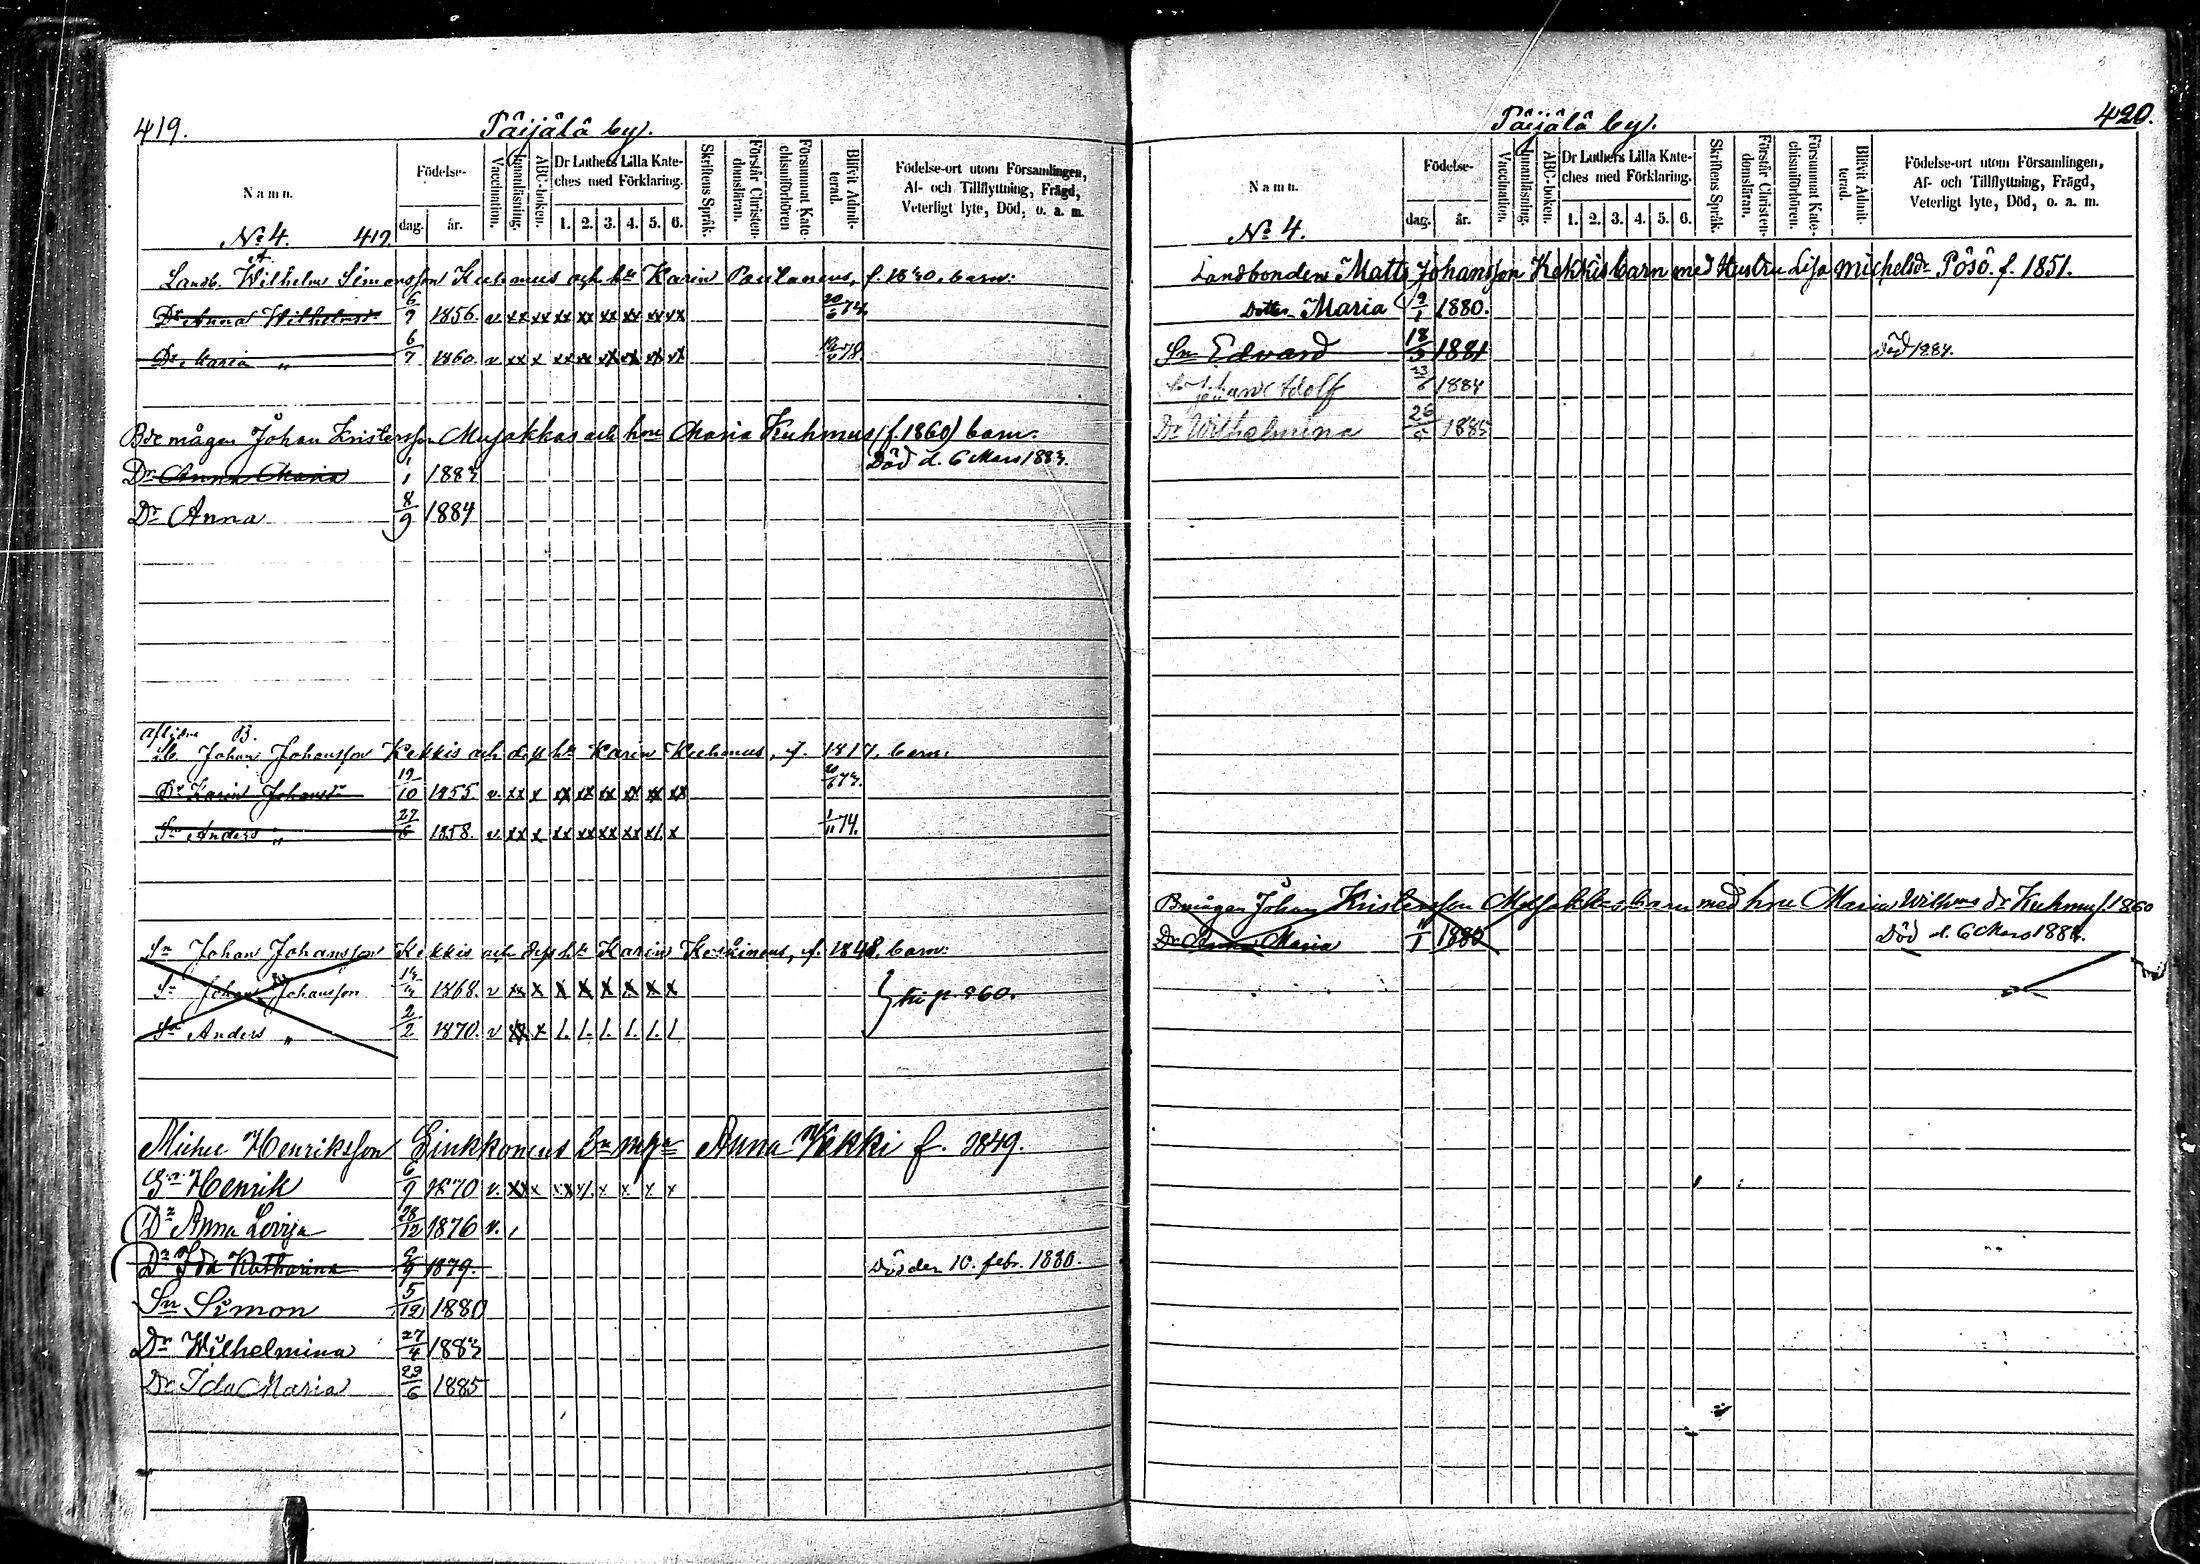 419.
Päijälä by.
Namn.
Födelse-
dag.
år.
Vaccination.
Innanläsning.
ABC-boken.
Dr Luthers Lilla Kate-
ches med Förklaring.
1. 2. 3. 4. 5. 6.
Skriftens Språk.
Förstår Christen-
domsläran.
Försummat Kate-
chismiförhören
Blifvit Admit-
terad.
Födelse-ort utom Församlingen,
Af- och Tillflyttning, Frägd,
Veterligt lyte, Död, o. a. m.
No 4. 419
A.
Landb. Wilhelm Simonsson Kuhmus och hu Karin Paulaneus, f. 1830, barn:
Dr Anna Wilhelmsdr 6/9 1856. v xx xx xx xx xx xx xx xx 20/6 74.
Dr Maria " 6/7 1860. v xx x xx xx xx xx xx xx 78.
Bde mågen Johan Kristersson Mujakkas och hru Maria Kuhmus (f. 1860) barn:
Dr Anna Maria 1/1 1883 Död d. 6 Mars 1883.
Dr Anna 8/9 1884
aflidne B.
Lb. Johan Johansson Kekkis och dess hu Karin Kuhmus, f. 1817, barn:
Dr Karin Johansdr 19/10 1855 v. xx x xx xx xx xx xx xx 73.
Sn Anders " 27/6 1858. v xx x xx xx xx xx x/. x 1/11 74.
Sn Johan Johansson Kekkis och dess hu Karin Koskineus, f. 1848, barn:
Sn Johan Johansson 1868. v xx x x x x x x x
} till p. 860.
Sn Anders " 2/2 1870. v xx x /. /. /. /. /. /.
Michel Henriksson Linkkoneus bn m hu Anna Kekki f. 1849.
Sn Henrik 6/9 1870 v. xx x xx x/. x x x x
Dr Anna Lovisa 28/12 1876 v. /
Dr Ida Katharina 1879. Död den 10. febr. 1880.
Sn Simon 5/12 1880
Dr Wilhelmina 27/4 1883
Dr Ida Maria 23/6 1885
Päijälä by.
420.
Namn.
Födelse-
dag.
år.
Vaccination.
Innanläsning.
ABC-boken.
Dr Luthers Lilla Kate-
ches med Förklaring.
1. 2. 3. 4. 5. 6.
Skriftens Språk.
Förstår Christen-
domsläran.
Försummat Kate-
chismiförhören.
Blifvit Admit-
terad.
Födelse-ort utom Församlingen,
Af- och Tillflyttning, Frägd,
Veterligt lyte, Död, o. a. m.
No 4.
Landbonden Matts Johansson Kekkis barn med Hustru Lisa Michelsdr Pösö. f. 1851.
Dotter Maria 9/1 1880.
Sn Edvard 18/3 1881 död 1884.
Sn Johan Adolf 23/6 1884
Dr Wilhelmina 26/5 1885
Bmågen Johan Kristersson Mujakkas barn med hru Maria Wilhms dr Kuhmus f. 1860
Dr Anna Maria 1883 Död d. 6 Mars 1883.